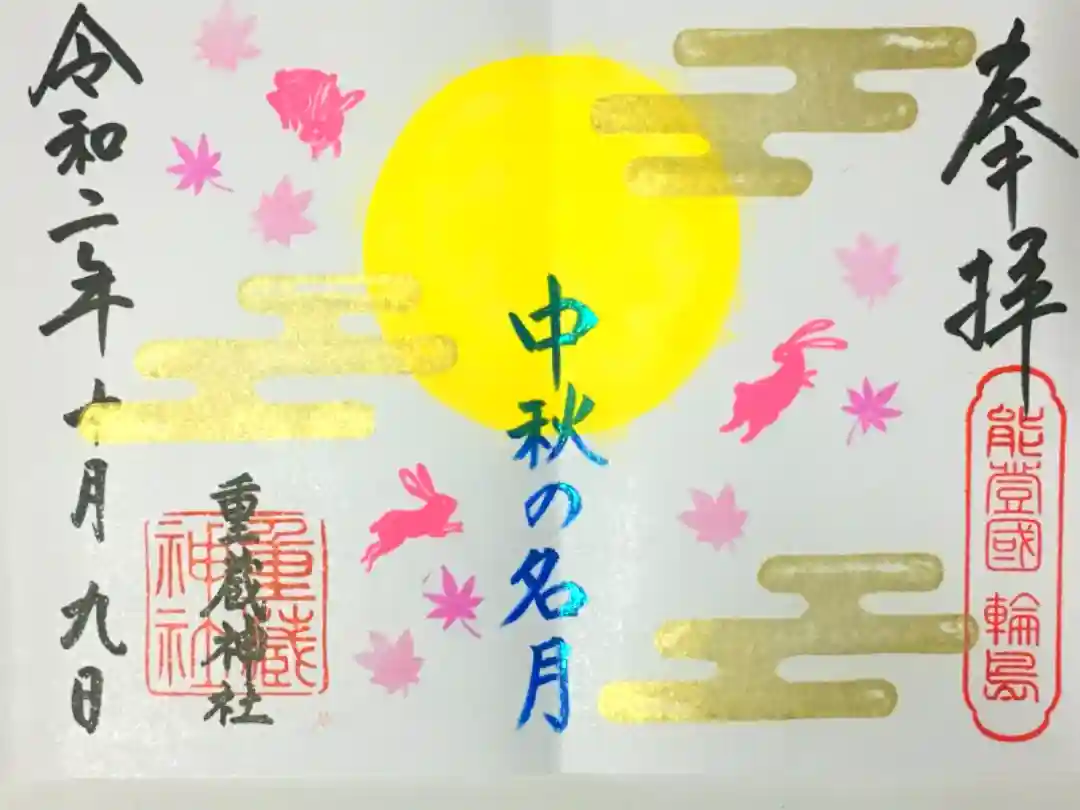 奉拝
能登國 輪島
中秋の名月
重蔵神社
重蔵神社
令和二年十月九日